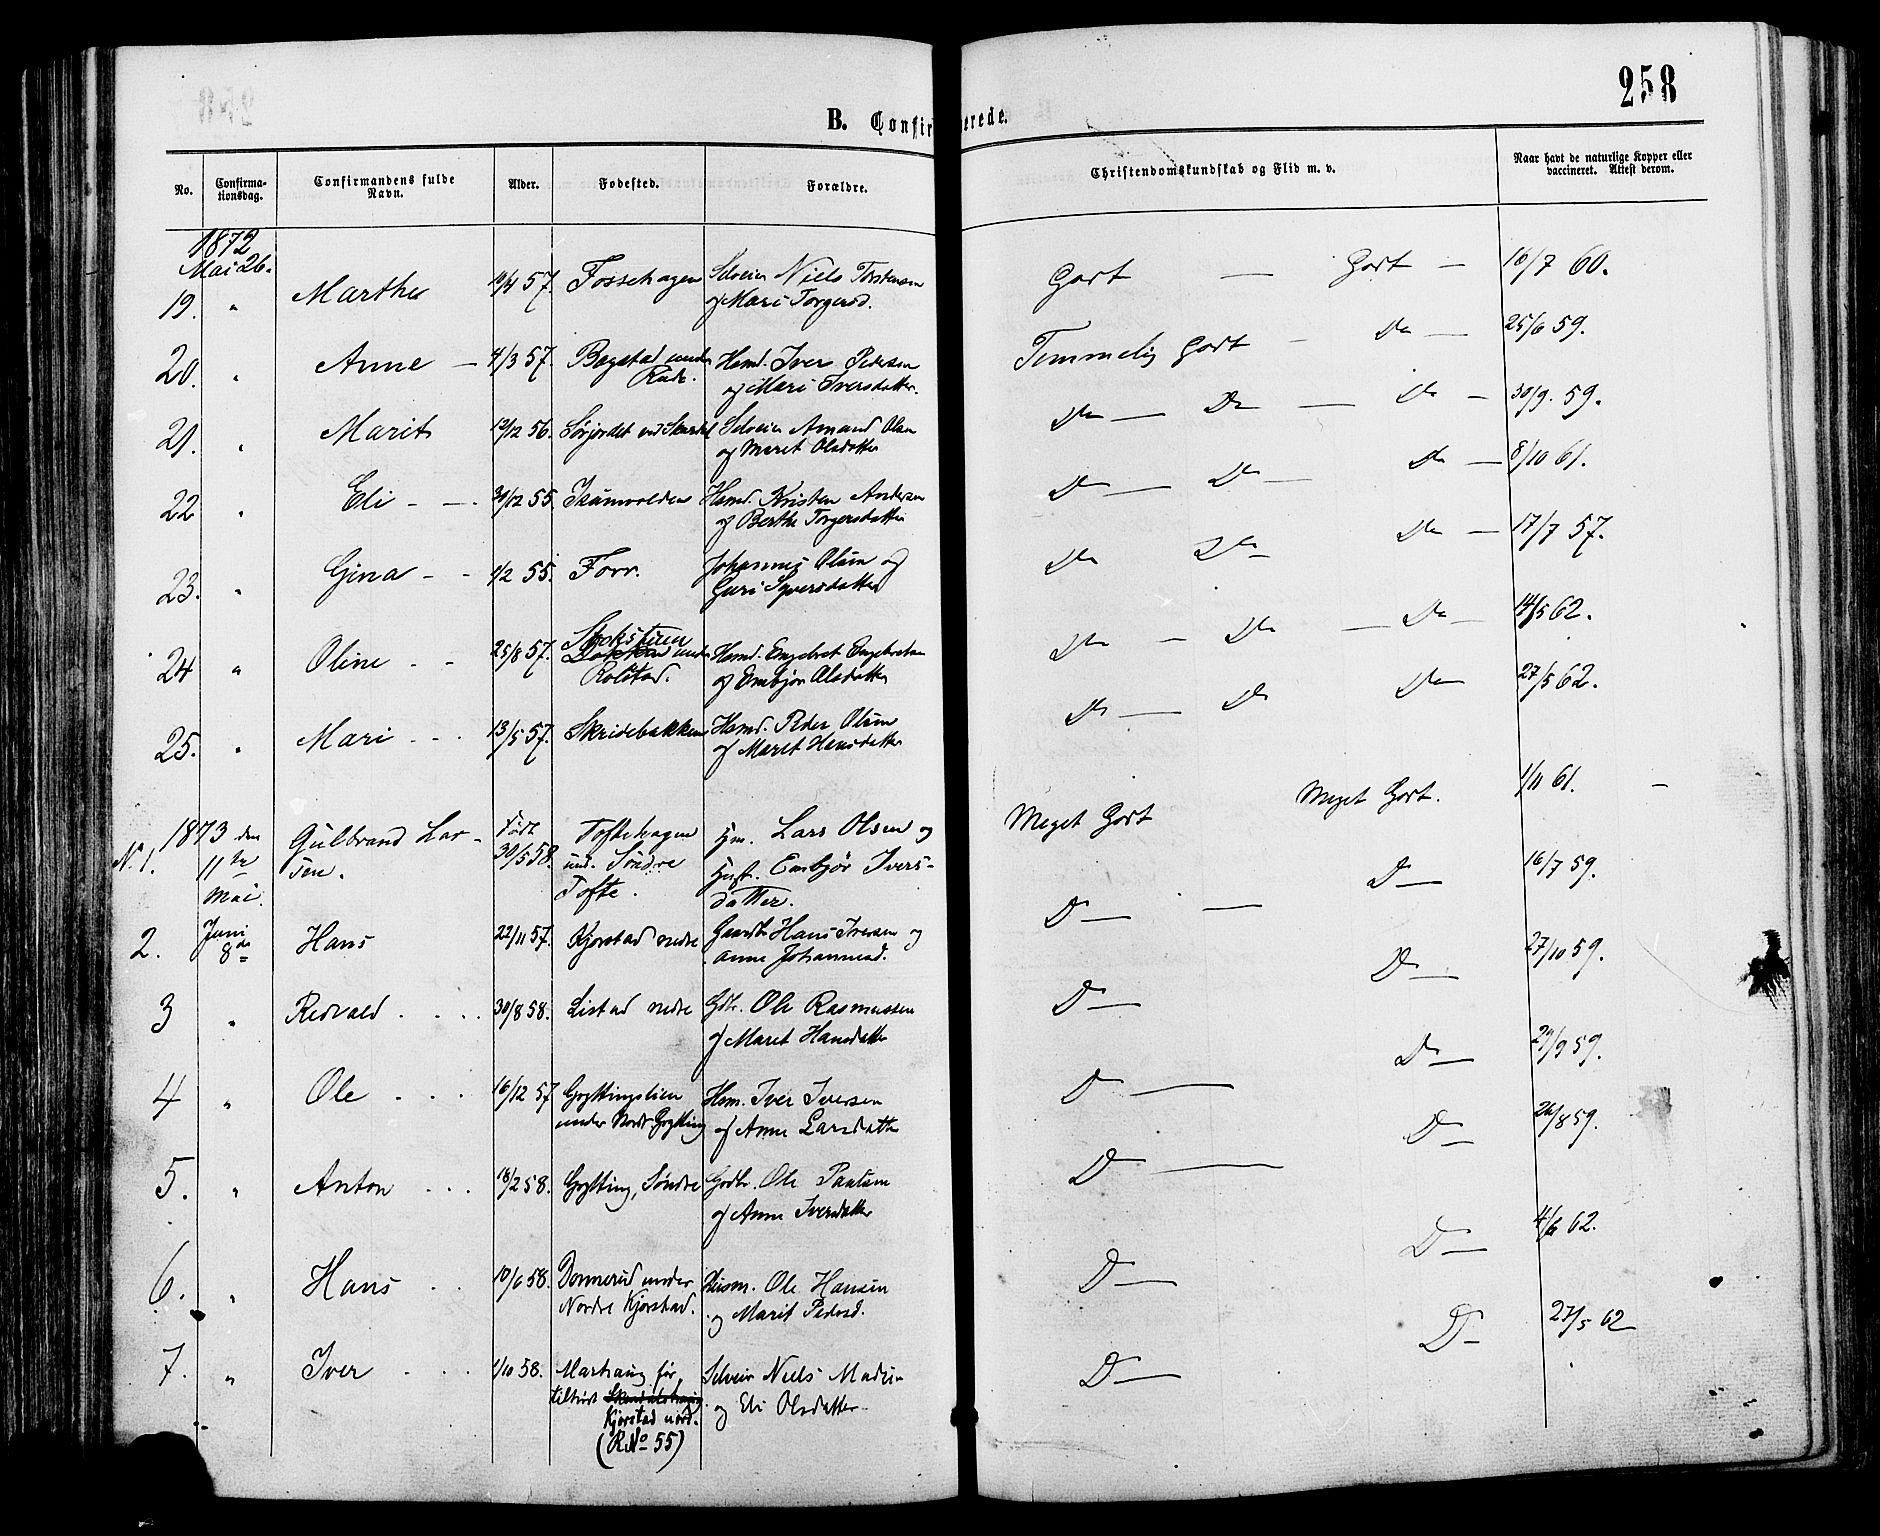 258
B. Confirmerede.
No. Confirmationsdag. Confirmandens fulde Navn. Alder. Fødested. Forældre. Christendomskundskab og Flid m. v. Naar havt de naturlige Kopper eller vaccineret. Attest derom.
1872
Mai 26.
19. " Marthe 19/4 57. Fossehagen Selveier Niels Torstensen
og Mari Torgersd. Godt — Godt — 16/7 60.
20. " Anne — 4/3 57. Bogstad under
Rude. Husmd. Iver Pedersen
og Mari Iversdatter. Temmelig Godt — Do — 25/6 59.
21. " Marit 12/12 56. Sørjordet und Skurdal Selveier Amund Olsen
og Marit Olsdatter Do — Do — Do — 30/9. 59.
22 " Eli - - 30/12 55. Husmd. Kristen Andersen
og Berthe Torgersdatter Do — Do — Do — 8/10 61.
23. " Gina - - 1/2 55. Forr. Johannes Olsen og
Guri Syversdatter Do Do Do — 17/7 57.
24 " Oline - - 25/8 57. Stokstuen
under
Rolstad. Husmd. Engebret Engebretsen
og Embjør Olsdatter Do — Do — Do — 14/5 62.
25. " Mari - - - 13/5 57. Skridebakken Husmd. Peder Olsen
og Marit Hansdatter Do — Do Do — 27/5 62.
1873 den
N. 1. 11te
Mai. Gulbrand Lar-
sen. Født
30/5 58. Toftehagen
und. Søndre
Tofte. Hm. Lars Olsen og
Hust. Embjør Ivers-
datter. Meget Godt Meget Godt. 1/11 61. —
2. Juni
8de Hans 22/11 57. Kjorstad nedre Gaardbr Hans Iversen og
Anne Johannesd. D — — D — 16/7 59.
3 " Redvald . . . . 30/8 58. Listad nedre Gdbr. Ole Rasmussen
og Maret Hansdatter D — D — 27/10 59.
4 " Ole . . . 16/12 57 Gryttingslien
under Nordr Grytting Hsm. Iver Iversen
og Anne Larsdatter D — D — 29/9 59.
5. " Anton . . . 18/2 58. Grytting, Søndre Gdbr. Ole Paulsen
og Anne Iversdatter D — D — 26/8 59.
6. " Hans . . 10/6 58. Donnerud under
Nordre Kjorstad. Husm. Ole Hansen
og Marit Pedersd. D — D — 4/6 62.
7. " Iver . . . 1/10 58. Marhaug før
tilhørt Skurdalshaug
Kjorstad nord.
(R No 55) Selveier Niels Madsen
og Eli Olsdatter D — D — 27/5 62